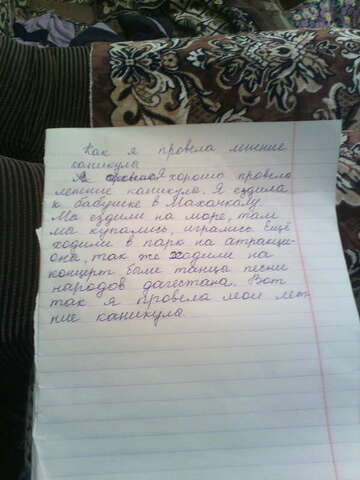 Как я провела летение
каникула
Я хорошо провела
летение каникула. Я ездила
к бабушке в Махачкалу.
Ма ездили на море, там
ма купались, игрались. Ещё
ходили в парк на атракци-
она, так же ходили на
концерт были танца песни
народов дагестана. Вот
так я провела мои лет-
ние каникула.